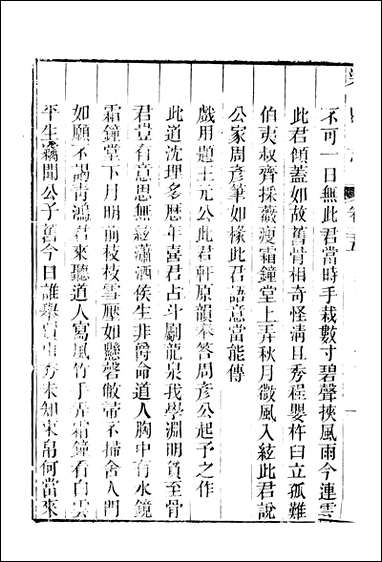 不可一日無此君當時手栽數寸碧聲挾風雨今連雲
此君傾蓋如故舊骨相奇怪淸且秀程嬰杵臼立孤難
伯夷叔齊採薇瘦霜鐘堂上弄秋月微風入絃此君說
公家周彥筆如椽此君語意當能傳
戲用題王元公此君軒原韻奉答周彥公起予之作
此道沈埋多歷年喜君占斗劚龍泉我學淵明貧至骨
君豈有意思無絃瀟洒侯生非爵命道人胸中有水鏡
霜鐘堂下月明前枝枝雪壓如懸磬敝帚不掃舍人門
如願不謁靑鴻君來聽道人寫風竹手弄霜鐘看白雲
平生竊聞公子舊今日誰舉賈生秀未知束帛何當來
卷五